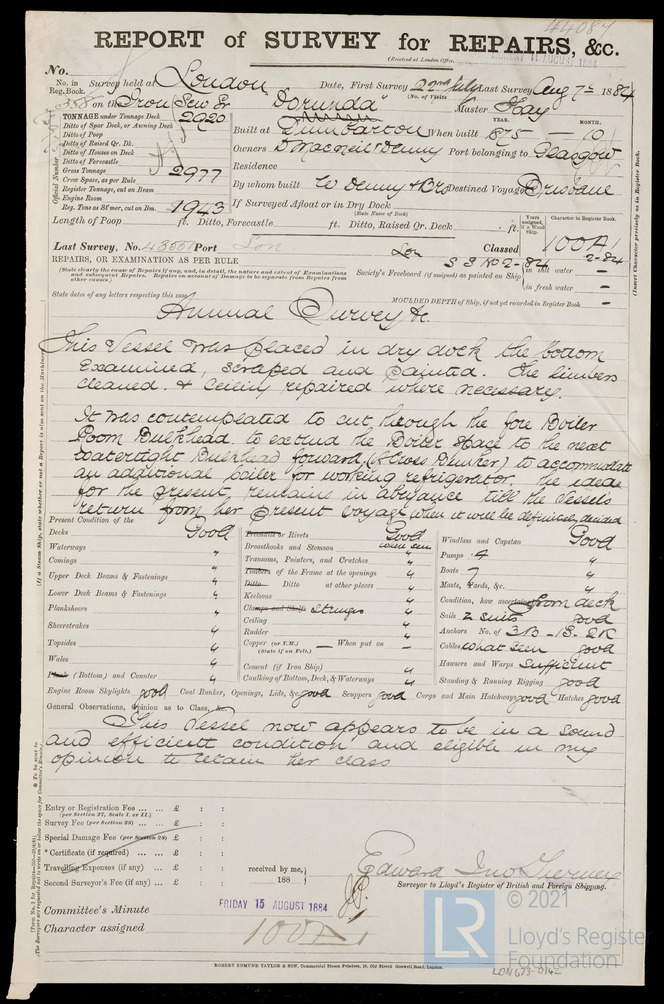 44087
REPORT of SURVEY for REPAIRS, &c.
(Received at London Office,
MONDAY 11 AUGUST 1884
No.
No. in Reg. Book.
Survey held at London Date, First Survey 22nd July Last Survey Aug 7th 1884
(No. of Visits
358 on the Iron Scw Sr "Dorunda" Master Hay
TONNAGE under Tonnage Deck 2920
Ditto of Spar Deck, or Awning Deck
Ditto of Poop
Ditto of Raised Qr. Dk.
Ditto of Houses on Deck
Ditto of Forecastle
Gross Tonnage 2977
Crew Space, as per Rule
Register Tonnage, cut on Beam
Engine Room
Reg. Tons as Str mer, cut on Bm. 1943
Official Number
YEAR. MONTH.
Built at Dumbarton When built 1875 — 10
Owners D MacNeil & Denny Port belonging to Glasgow
Residence
By whom built W Denny & Bros Destined Voyage Brisbane
If Surveyed Afloat or in Dry Dock
(State Name of Dock)
Length of Poop ft. Ditto, Forecastle ft. Ditto, Raised Qr. Deck ft.
Years assigned, if a Wood Ship.
Character in Register Book.
100A1
2-84
(Insert Character precisely as in Register Book.
Last Survey, No. Port Lon Lon Classed
S S No 2-84
REPAIRS, OR EXAMINATION AS PER RULE
(State clearly the cause of Repairs if any; and, in detail, the nature and extent of Examinations and subsequent Repairs. Repairs on account of Damage to be separate from Repairs from other causes.)
Society's Freeboard (if assigned) as painted on Ship
in salt water —
in fresh water —
State dates of any letters respecting this case
MOULDED DEPTH of Ship, if not yet recorded in Register Book —
Annual Survey &c.
This Vessel was placed in dry dock the bottom
Examined, scraped and painted. The limbers
cleaned & ceiling repaired where necessary.
It was contemplated to cut through the fore Boiler
Room Bulkhead to extend the Boiler space to the next
Watertight Bulkhead forward, (Across Bunker) to accommodate
an additional boiler for working refrigerator, the idea
for the present remains in abeyance till the Vessels
return from her present voyage when it will be definitely decided
Present Condition of the
Decks Good
Waterways "
Comings "
Upper Deck Beams & Fastenings "
Lower Deck Beams & Fastenings "
Planksheers "
Sheerstrakes "
Topsides "
Wales "
Plank (Bottom) and Counter "
Treenails or Rivets Good
Breasthooks and Stemson where seen
Transoms, Pointers, and Crutches "
Timbers of the Frame at the openings "
Ditto Ditto at other places "
Keelsons "
Clamps and Shelfs Stringers "
Ceiling "
Rudder "
Copper (or Y.M.) — When put on —
(State if on Felt.)
Cement (if Iron Ship) "
Caulking of Bottom, Deck, & Waterways "
Windlass and Capstan Good
Pumps 4 "
Boats 7 "
Masts, Yards, &c. "
Condition, how ascertained from deck
Sails 2 suits good
Anchors No. of 3B - 1S. 2K
Cables what seen good
Hawsers and Warps Sufficient
Standing & Running Rigging good
Engine Room Skylights good Coal Bunker, Openings, Lids, &c. good Scuppers good Cargo and Main Hatchways good Hatches good
General Observations, Opinion as to Class, &c.
This Vessel now appears to be in a sound
and efficient condition and eligible in my
opinion to retain her class
Entry or Registration Fee ... ... £ : :
(per Section 27, Scale I. or II.)
Survey Fee (per Section 28) ... £ : :
Special Damage Fee (per Section 28) £ : :
* Certificate (if required) ... £ : :
Travelling Expenses (if any) ... £ : :
Second Surveyor's Fee (if any) ... £ : :
received by me,
188
Surveyor to Lloyd's Register of British and Foreign Shipping.
Committee's Minute FRIDAY 15 AUGUST 1884
Character assigned 100A1
ROBERT EDMUND TAYLOR & SON, Commercial Steam Printers, 19, Old Street Goswell Road, London.
LON673-0142
© 2021
LR
Lloyd's Register
Foundation